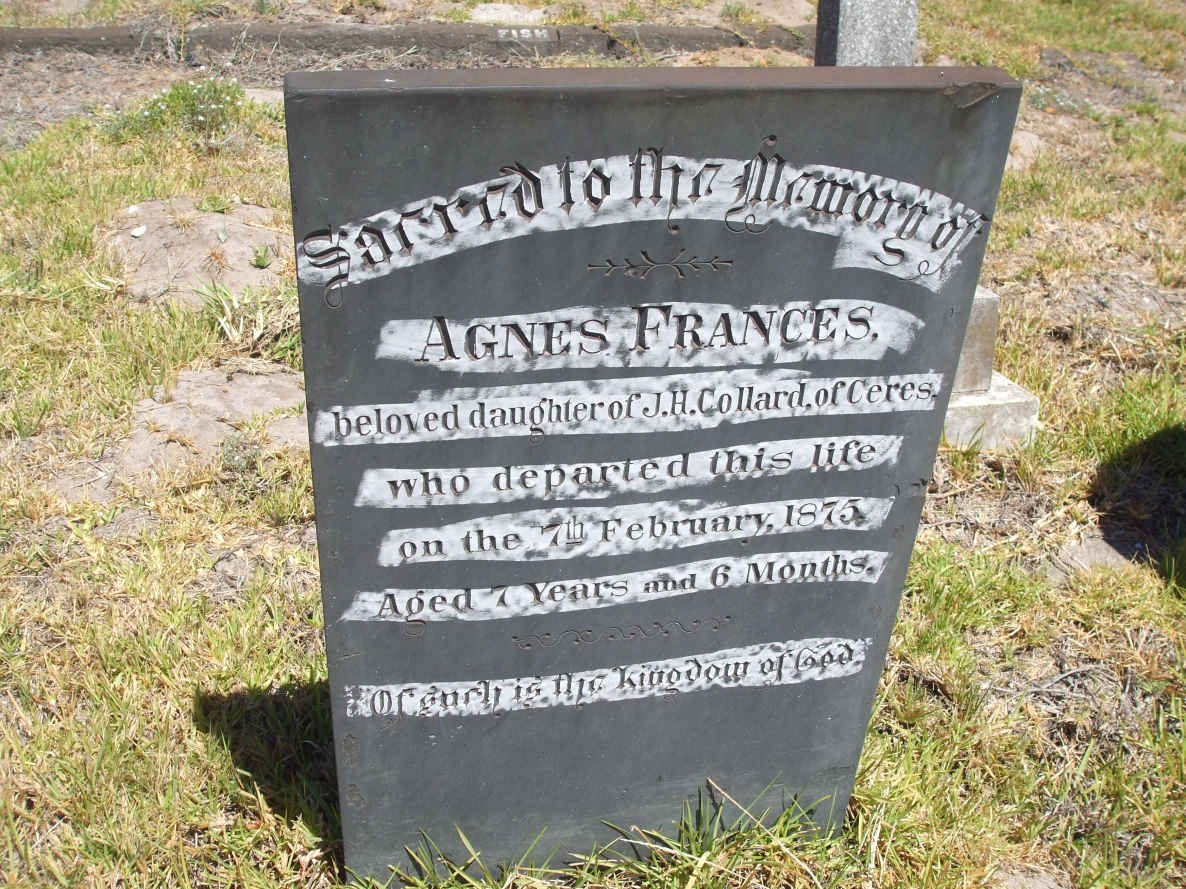 FISH
Sacred to the Memory of
AGNES FRANCES.
beloved daughter of J.H. Collard, of Ceres.
who departed this life
on the 7th February, 1875.
Aged 7 Years and 6 Months.
Of such is the kingdom of God